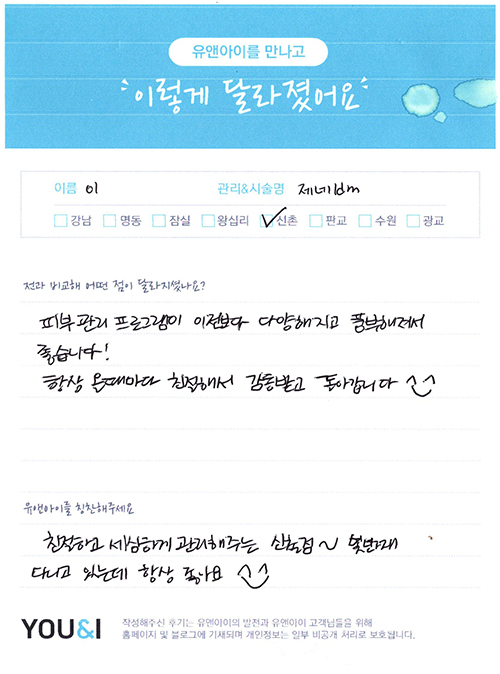 유앤아이를 만나고
이렇게 달라졌어요
이름 이 관리&시술명 제네bm
강남 명동 잠실 왕십리 신촌 판교 수원 광교
전과 비교해 어떤 점이 달라지셨나요?
피부관리 프로그램이 이전보다 다양해지고 풍부해져서
좋습니다!
항상 올때마다 친절해서 감동받고 돌아갑니다
유앤아이를 칭찬해주세요
친절하고 세심하게 관리해주는 신촌점~ 몇년째
다니고 있는데 항상 좋아요
YOU&I 작성해주신 후기는 유앤아이의 발전과 유앤아이 고객님들을 위해
홈페이지 및 블로그에 기재되며 개인정보는 일부 비공개 처리로 보호됩니다.